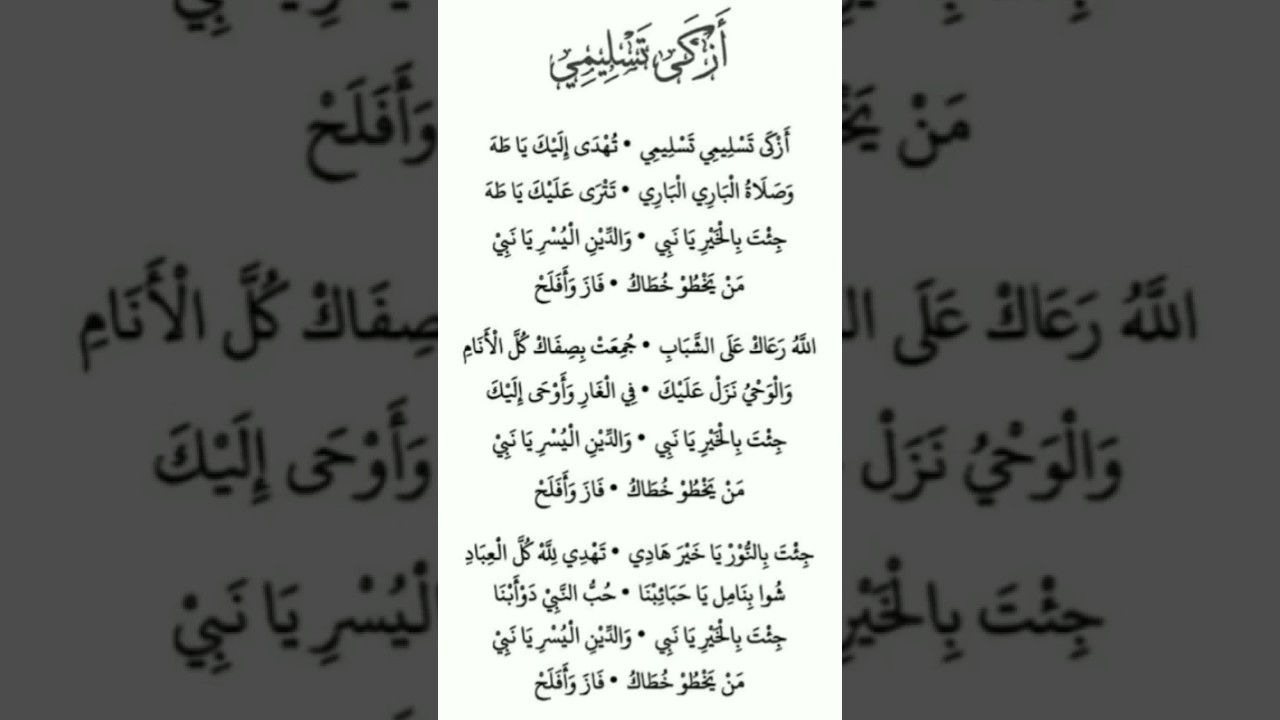 أَزْكَى تَسْلِيمِي
أَزْكَى تَسْلِيمِي تَسْلِيمِي • تُهْدَى إِلَيْكَ يَا طَهَ
وَصَلَاةُ الْبَارِي الْبَارِي • تَتْرَى عَلَيْكَ يَا طَهَ
جِئْتَ بِالْخَيْرِ يَا نَبِي • وَالدِّيْنِ الْيُسْرِ يَا نَبِيْ
مَنْ يَخْطُوْ خُطَاكُ • فَازَ وَأَفَلَحْ
اللَّهُ رَعَاكْ عَلَى الشَّبَابِ • جُمِعَتْ بِصِفَاكْ كُلَّ الْأَنَامِ
وَالْوَحْيُ نَزَلْ عَلَيْكَ • فِي الْغَارِ وَأَوْحَى إِلَيْكَ
جِئْتَ بِالْخَيْرِ يَا نَبِي • وَالدِّيْنِ الْيُسْرِ يَا نَبِيْ
مَنْ يَخْطُوْ خُطَاكُ • فَازَ وَأَفَلَحْ
جِئْتَ بِالنُّوْرْ يَا خَيْرَ هَادِي • تَهْدِي لِلَّهْ كُلَّ الْعِبَادِ
شُوا بِنَامِل يَا حَبَائِبْنَا • حُبُّ النَّبِيْ دَوْأَبْنَا
جِئْتَ بِالْخَيْرِ يَا نَبِي • وَالدِّيْنِ الْيُسْرِ يَا نَبِيْ
مَنْ يَخْطُوْ خُطَاكُ • فَازَ وَأَفَلَحْ